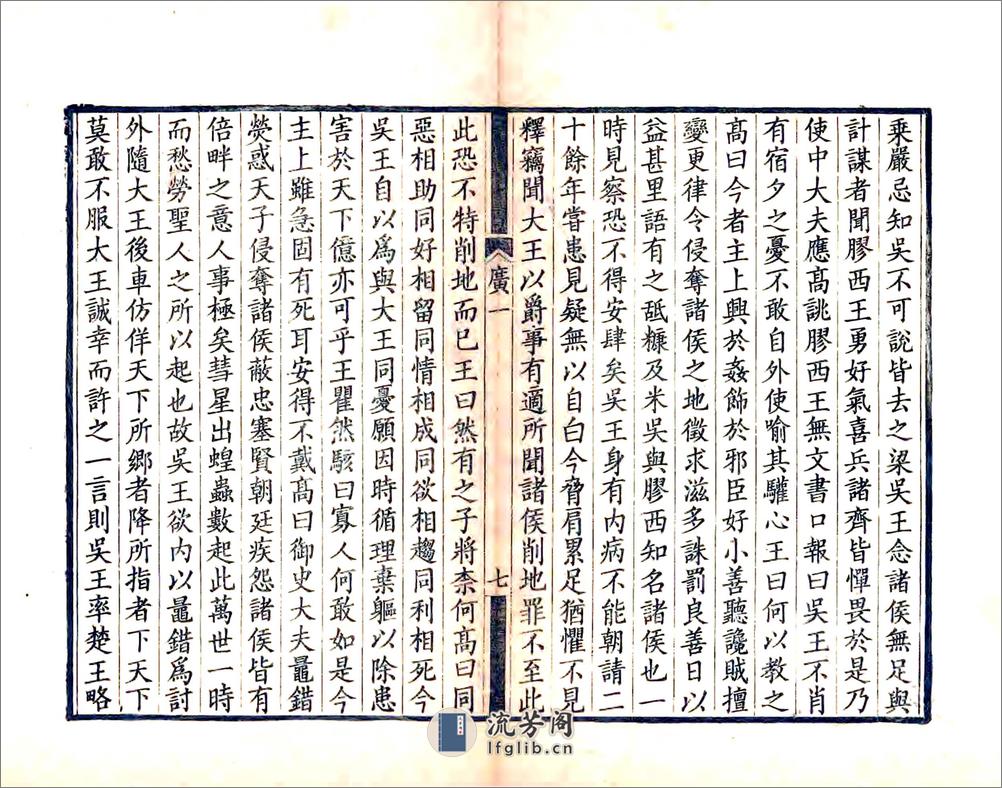 乘嚴忌知吳不可說皆去之梁吳王念諸侯無足與
計謀者聞膠西王勇好氣喜兵諸齊皆憚畏於是乃
使中大夫應髙誂膠西王無文書口報曰吳王不肖
有宿夕之憂不敢自外使喻其驩心王曰何以教之
髙曰今者主上興於姦飾於邪臣好小善聽讒賊擅
變更律令侵奪諸侯之地徵求滋多誅罰良善日以
益甚里語有之䑛糠及米吳與膠西知名諸侯也一
時見察恐不得安肆矣吳王身有内病不能朝請二
十餘年嘗患見疑無以自白今脅肩累足猶懼不見
釋竊聞大王以爵事有適所聞諸侯削地罪不至此
廣一
七
此恐不特削地而已王曰然有之子將柰何髙曰同
惡相助同好相留同情相成同欲相趨同利相死今
吳王自以爲與大王同憂願因時循理棄軀以除患
害於天下億亦可乎王瞿然駭曰寡人何敢如是今
主上雖急固有死耳安得不戴髙曰御史大夫鼂錯
熒惑天子侵奪諸侯蔽忠塞賢朝廷疾怨諸侯皆有
倍畔之意人事極矣彗星出蝗蟲數起此萬世一時
而愁勞聖人之所以起也故吳王欲内以鼂錯爲討
外隨大王後車仿佯天下所鄉者降所指者下天下
莫敢不服大王誠幸而許之一言則吳王率楚王略
流芳阁
lfglib.cn